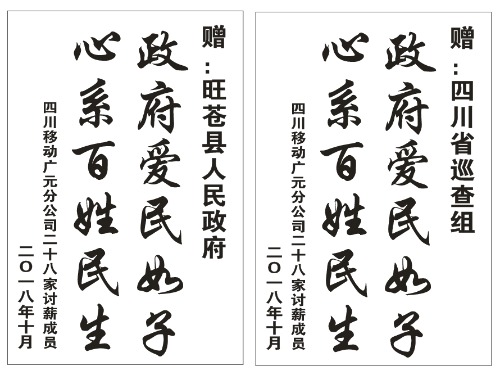 赠：旺苍县人民政府
政府爱民如子
心系百姓民生
四川移动广元分公司二十八家讨薪成员
二〇一八年十月
赠：四川省巡查组
政府爱民如子
心系百姓民生
四川移动广元分公司二十八家讨薪成员
二〇一八年十月